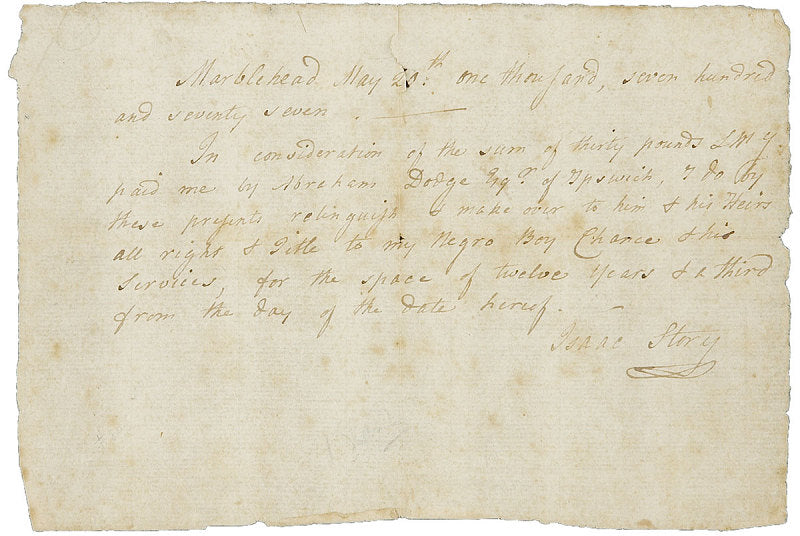 Marblehead May 20th. one thousand, seven hundred
and seventy seven.
In consideration of the sum of thirty pounds LMy
paid me by Abraham Dodge Esqr. of Ipswich, I do by
these presents relinquish & make over to him & his Heirs
all right & Title to my Negro Boy Chance & his
Services, for the space of twelve Years & a third
from the day of the date hereof. –
Isaac Story